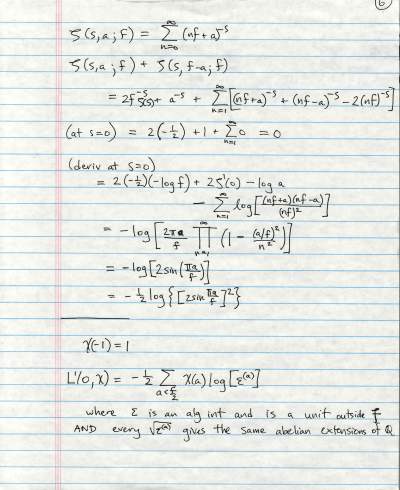 6
ζ(s,a;f) = ∑_{n=0}^{∞} (nf+a)^{-s}
ζ(s,a;f) + ζ(s,f-a;f)
= 2f^{-s}ζ(s) + a^{-s} + ∑_{n=1}^{∞} [(nf+a)^{-s} + (nf-a)^{-s} - 2(nf)^{-s}]
(at s=0) = 2(-½) + 1 + ∑_{n=1}^{∞} 0 = 0
(deriv at s=0)
= 2(-½)(-log f) + 2ζ'(0) - log a
- ∑_{n=1}^{∞} log[(nf+a)(nf-a)/(nf)²]
= -log[2πa/f ∏_{n=1}^{∞} (1 - (a/f)²/n²)]
= -log[2sin(πa/f)]
= -½ log{[2sin πa/f]²}
χ(-1) = 1
L'(0,χ) = -½ ∑_{a<f/2} χ(a) log[ε^{(a)}]
where ε is an alg int and is a unit outside f
AND every √ε^{(a)} gives the same abelian extensions of Q